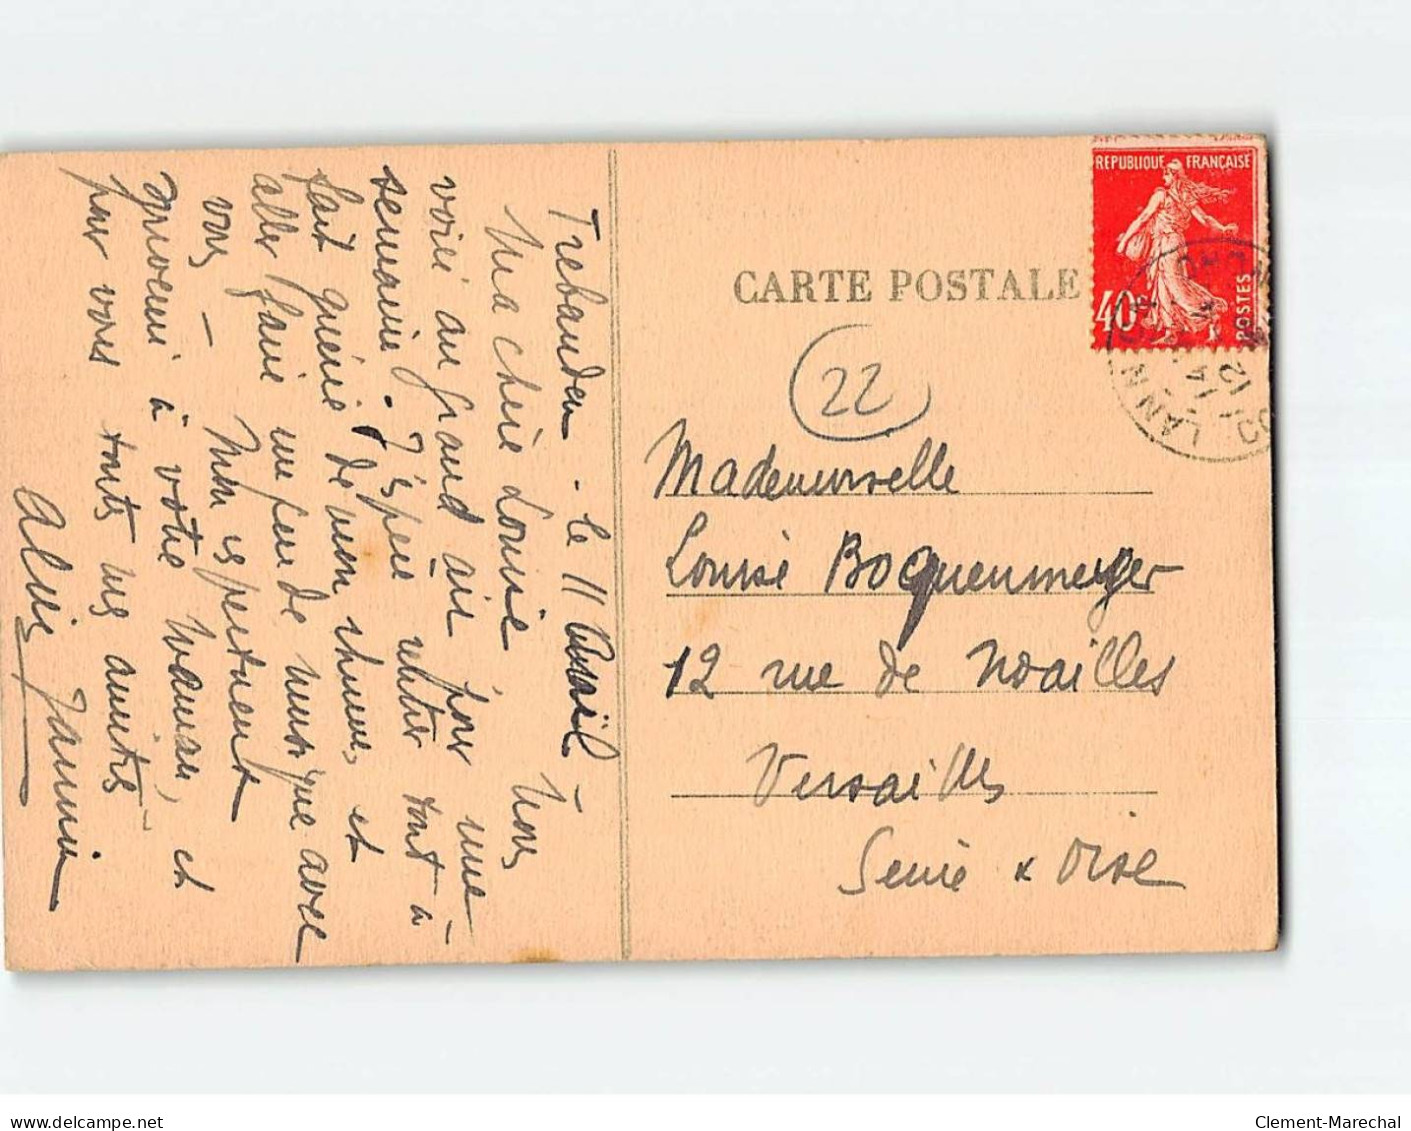 Trebeurden - le 11 Avril -
Ma chère Louise Nous
voici au grand air pour une
semaine. J'espère rentrer tout à
fait guérie de mon rhume, et
aller faire un peu de musique avec
vous - Mon
à votre maman, et
pour vous toutes mes amitiés -
Alix Jannin
CARTE POSTALE
REPUBLIQUE FRANÇAISE
40c
POSTES
LANNION
22
Mademoiselle
Louise Bocquenmeyer
12 rue de Noailles
Versailles
Seine & Oise
www.delcampe.net
Clement-Marechal